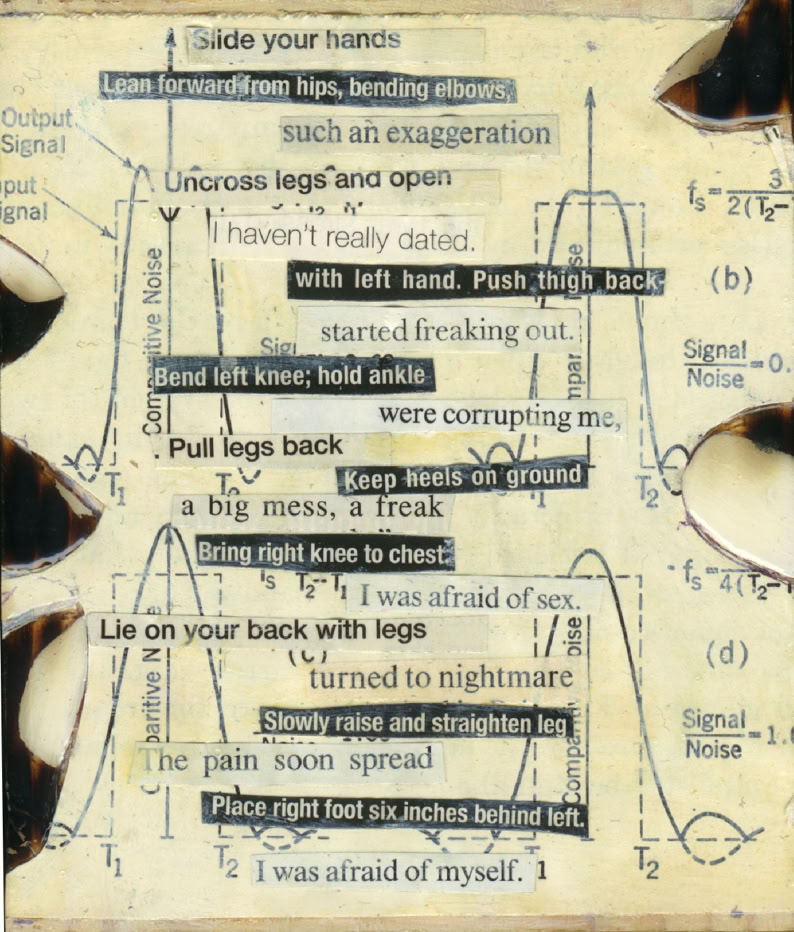 Slide your hands
Lean forward from hips, bending elbows,
Output
Signal
such an exaggeration
put
ignal
Uncross legs and open
f_s = 3
2(T₂-
I haven't really dated.
Comparitive Noise
with left hand. Push thigh back-
(b)
started freaking out.
Signal
Noise = 0.
Bend left knee; hold ankle
were corrupting me,
. Pull legs back
Keep heels on ground
T₁
T₂
a big mess, a freak
Bring right knee to chest.
T₂-T₁
f_s =
4(T₂-T
I was afraid of sex.
Lie on your back with legs
(c)
(d)
turned to nightmare
Slowly raise and straighten leg
Signal
Noise = 1.
The pain soon spread
Place right foot six inches behind left.
T₁
T₂
T₂
I was afraid of myself. 1